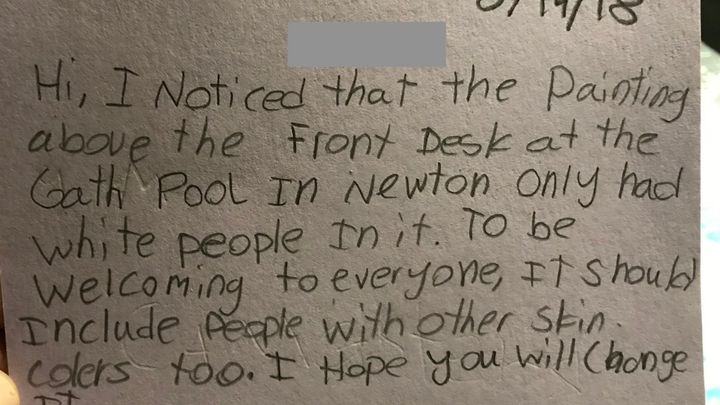 Hi, I Noticed that the Painting
above the Front Desk at the
Gath Pool In Newton only had
white people In it. To be
welcoming to everyone, It should
Include People with other skin
colers too. I Hope you will Change
It